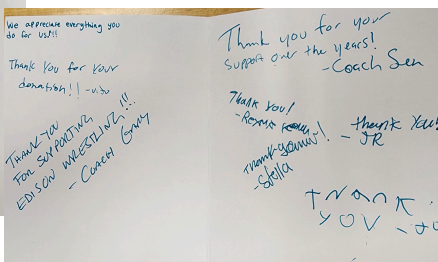 We appreciate everything you
do for us!!!
Thank You for Your
donation!! -
THANK YOU
FOR SUPPORTING
EDISON WRESTLING!!!
- COACH
Thank you for your
support over the years!
- Coach Sen
Thank You!
Thank you!
- JR
Thank you!
- Stella
THANK
YOU -JO